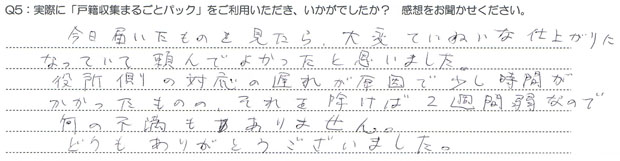 Q5：実際に「戸籍収集まるごとパック」をご利用いただき、いかがでしたか？ 感想をお聞かせください。
今日届いたものを見たら、大変ていねいな仕上がりに
なっていて頼んでよかったと思いました。
役所側の対応の遅れが原因で少し時間が
かかったものの、それを除けば2週間弱なので
何の不満もありません。
どうもありがとうございました。